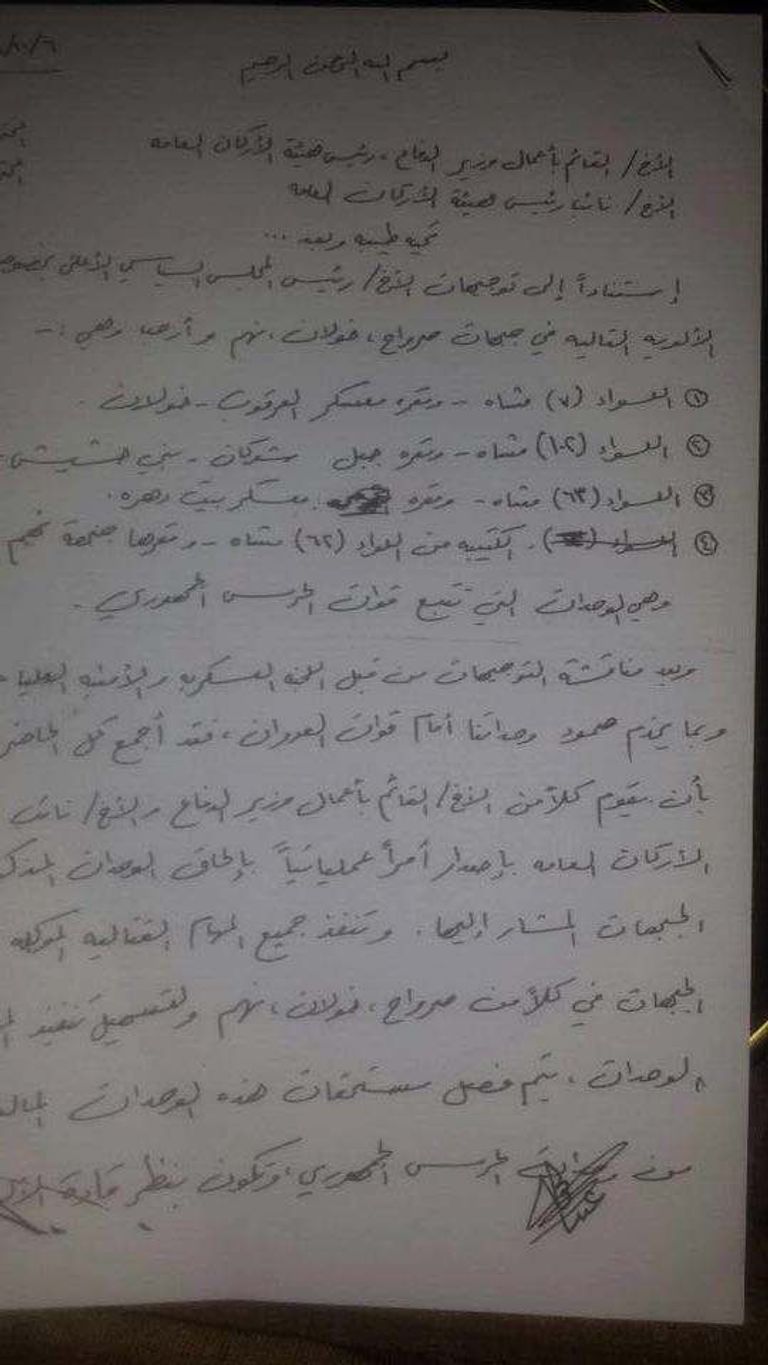 بسم الله الرحمن الرحيم
١٠/٦/
الأخ/ القائم بأعمال وزير الدفاع ، رئيس هيئة الأركان العامه
الأخ/ نائب رئيس هيئة الأركان العامه
تحيه طيبه وبعد ...
إستناداً إلى توجيهات الأخ/ رئيس المجلس السياسي الأعلى بخصوص
الألويه التاليه في جبهات صرواح ، خولان ، نهم وأرحب وهي :-
① اللـواء (٧) مشاه - ومقره معسكر العرقوب - خولان .
② اللـواء (١٠٢) مشاه - ومقره جبل شوكان - بني حشيش .
③ اللـواء (٦٣) مشاه - ومقره معسكر بيت دهره .
④ الكتيبه من اللواء (٦٢) مشاه - ومقرها نهم
وهي الوحدات التي تتبع قوات الحرس الجمهوري .
وبعد مناقشة التوجيهات من قبل اللجنه العسكريه والأمنيه العليا
وبما يخدم صمود وحداتنا أمام قوات العدوان ، فقد أجمع كل
بأن يقوم كلاً من الأخ/ القائم بأعمال وزير الدفاع والأخ/ نائب
الأركان العامه بإصدار أمراً عملياتياً بإلحاق الوحدات
الجبهات المشار إليها . وتنفذ جميع المهام القتاليه الموكله
الجبهات في كلاً من صرواح ، خولان ، نهم ولتسهيل تنفيذ
الوحدات ، يتم فصل مستحقات هذه الوحدات
من الحرس الجمهوري ، وتكون بنظر قادة